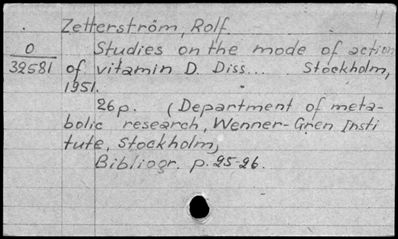 4
Zetterström, Rolf.
0 Studies on the mode of action
32581 of vitamin D. Diss... Stockholm,
1951.
26p. (Department of meta-
bolic research, Wenner-Gren Insti
tute, Stockholm)
Bibliogr. p. 25-26.